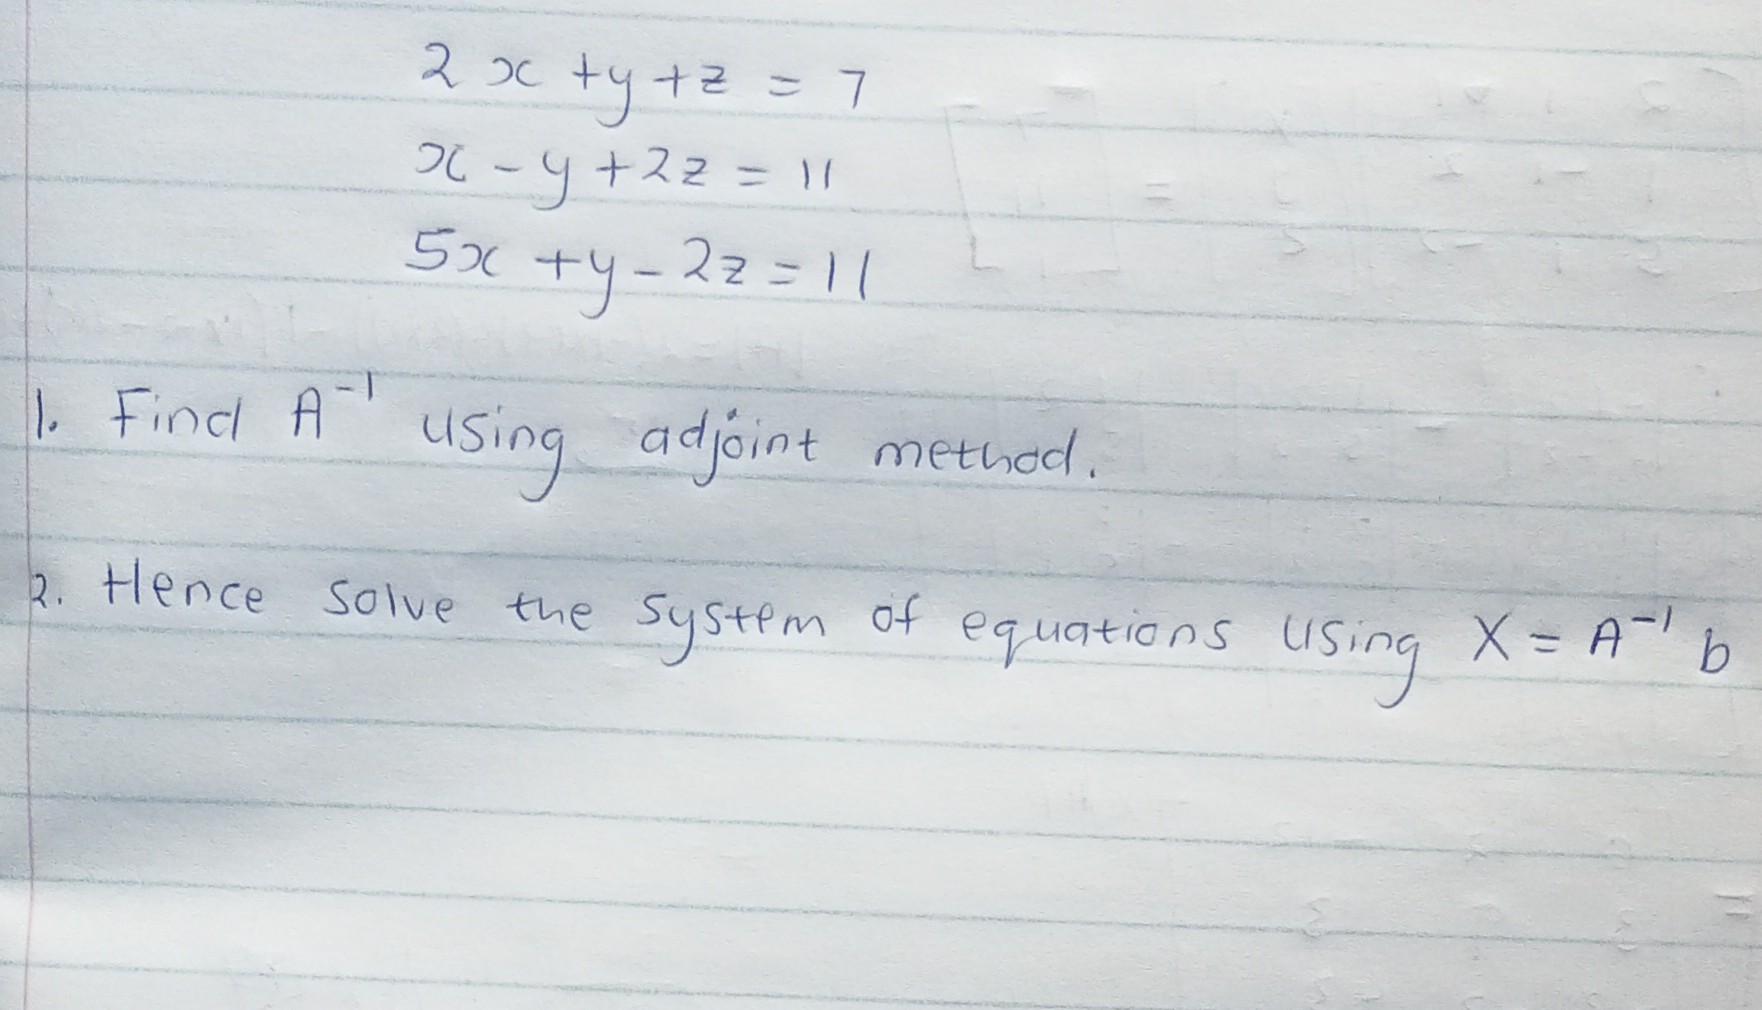 2x + y + z = 7
x - y + 2z = 11
5x + y - 2z = 11
1. Find A⁻¹ using adjoint method.
2. Hence solve the system of equations using X = A⁻¹ b